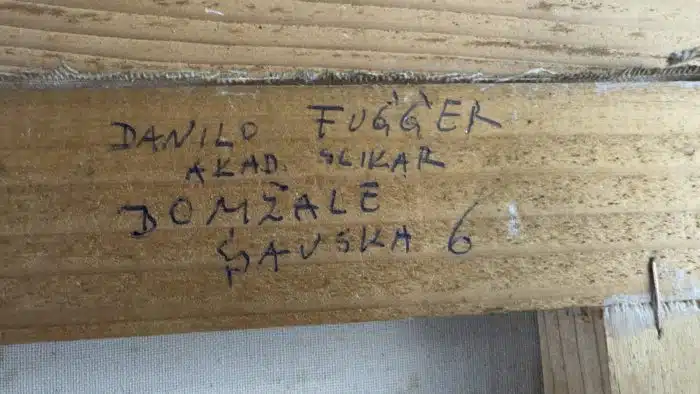 DANILO FUĠĠER
AKAD. SLIKAR
DOMŽALE
SAVSKA 6